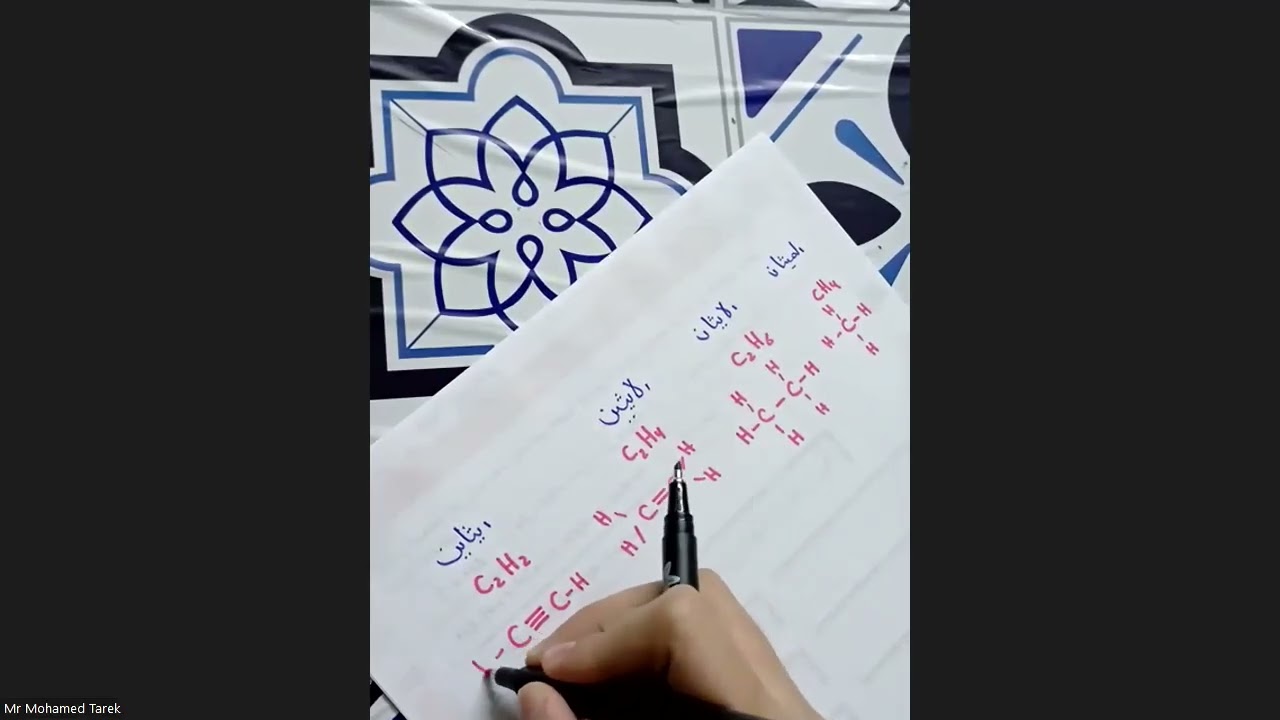 الميثان
CH4
H
H-C-H
H
الايثان
C2H6
H H
H-C-C-H
H H
الايثين
C2H4
H H
C=
H H
ايثاين
C2H2
-C≡C-H
Mr Mohamed Tarek